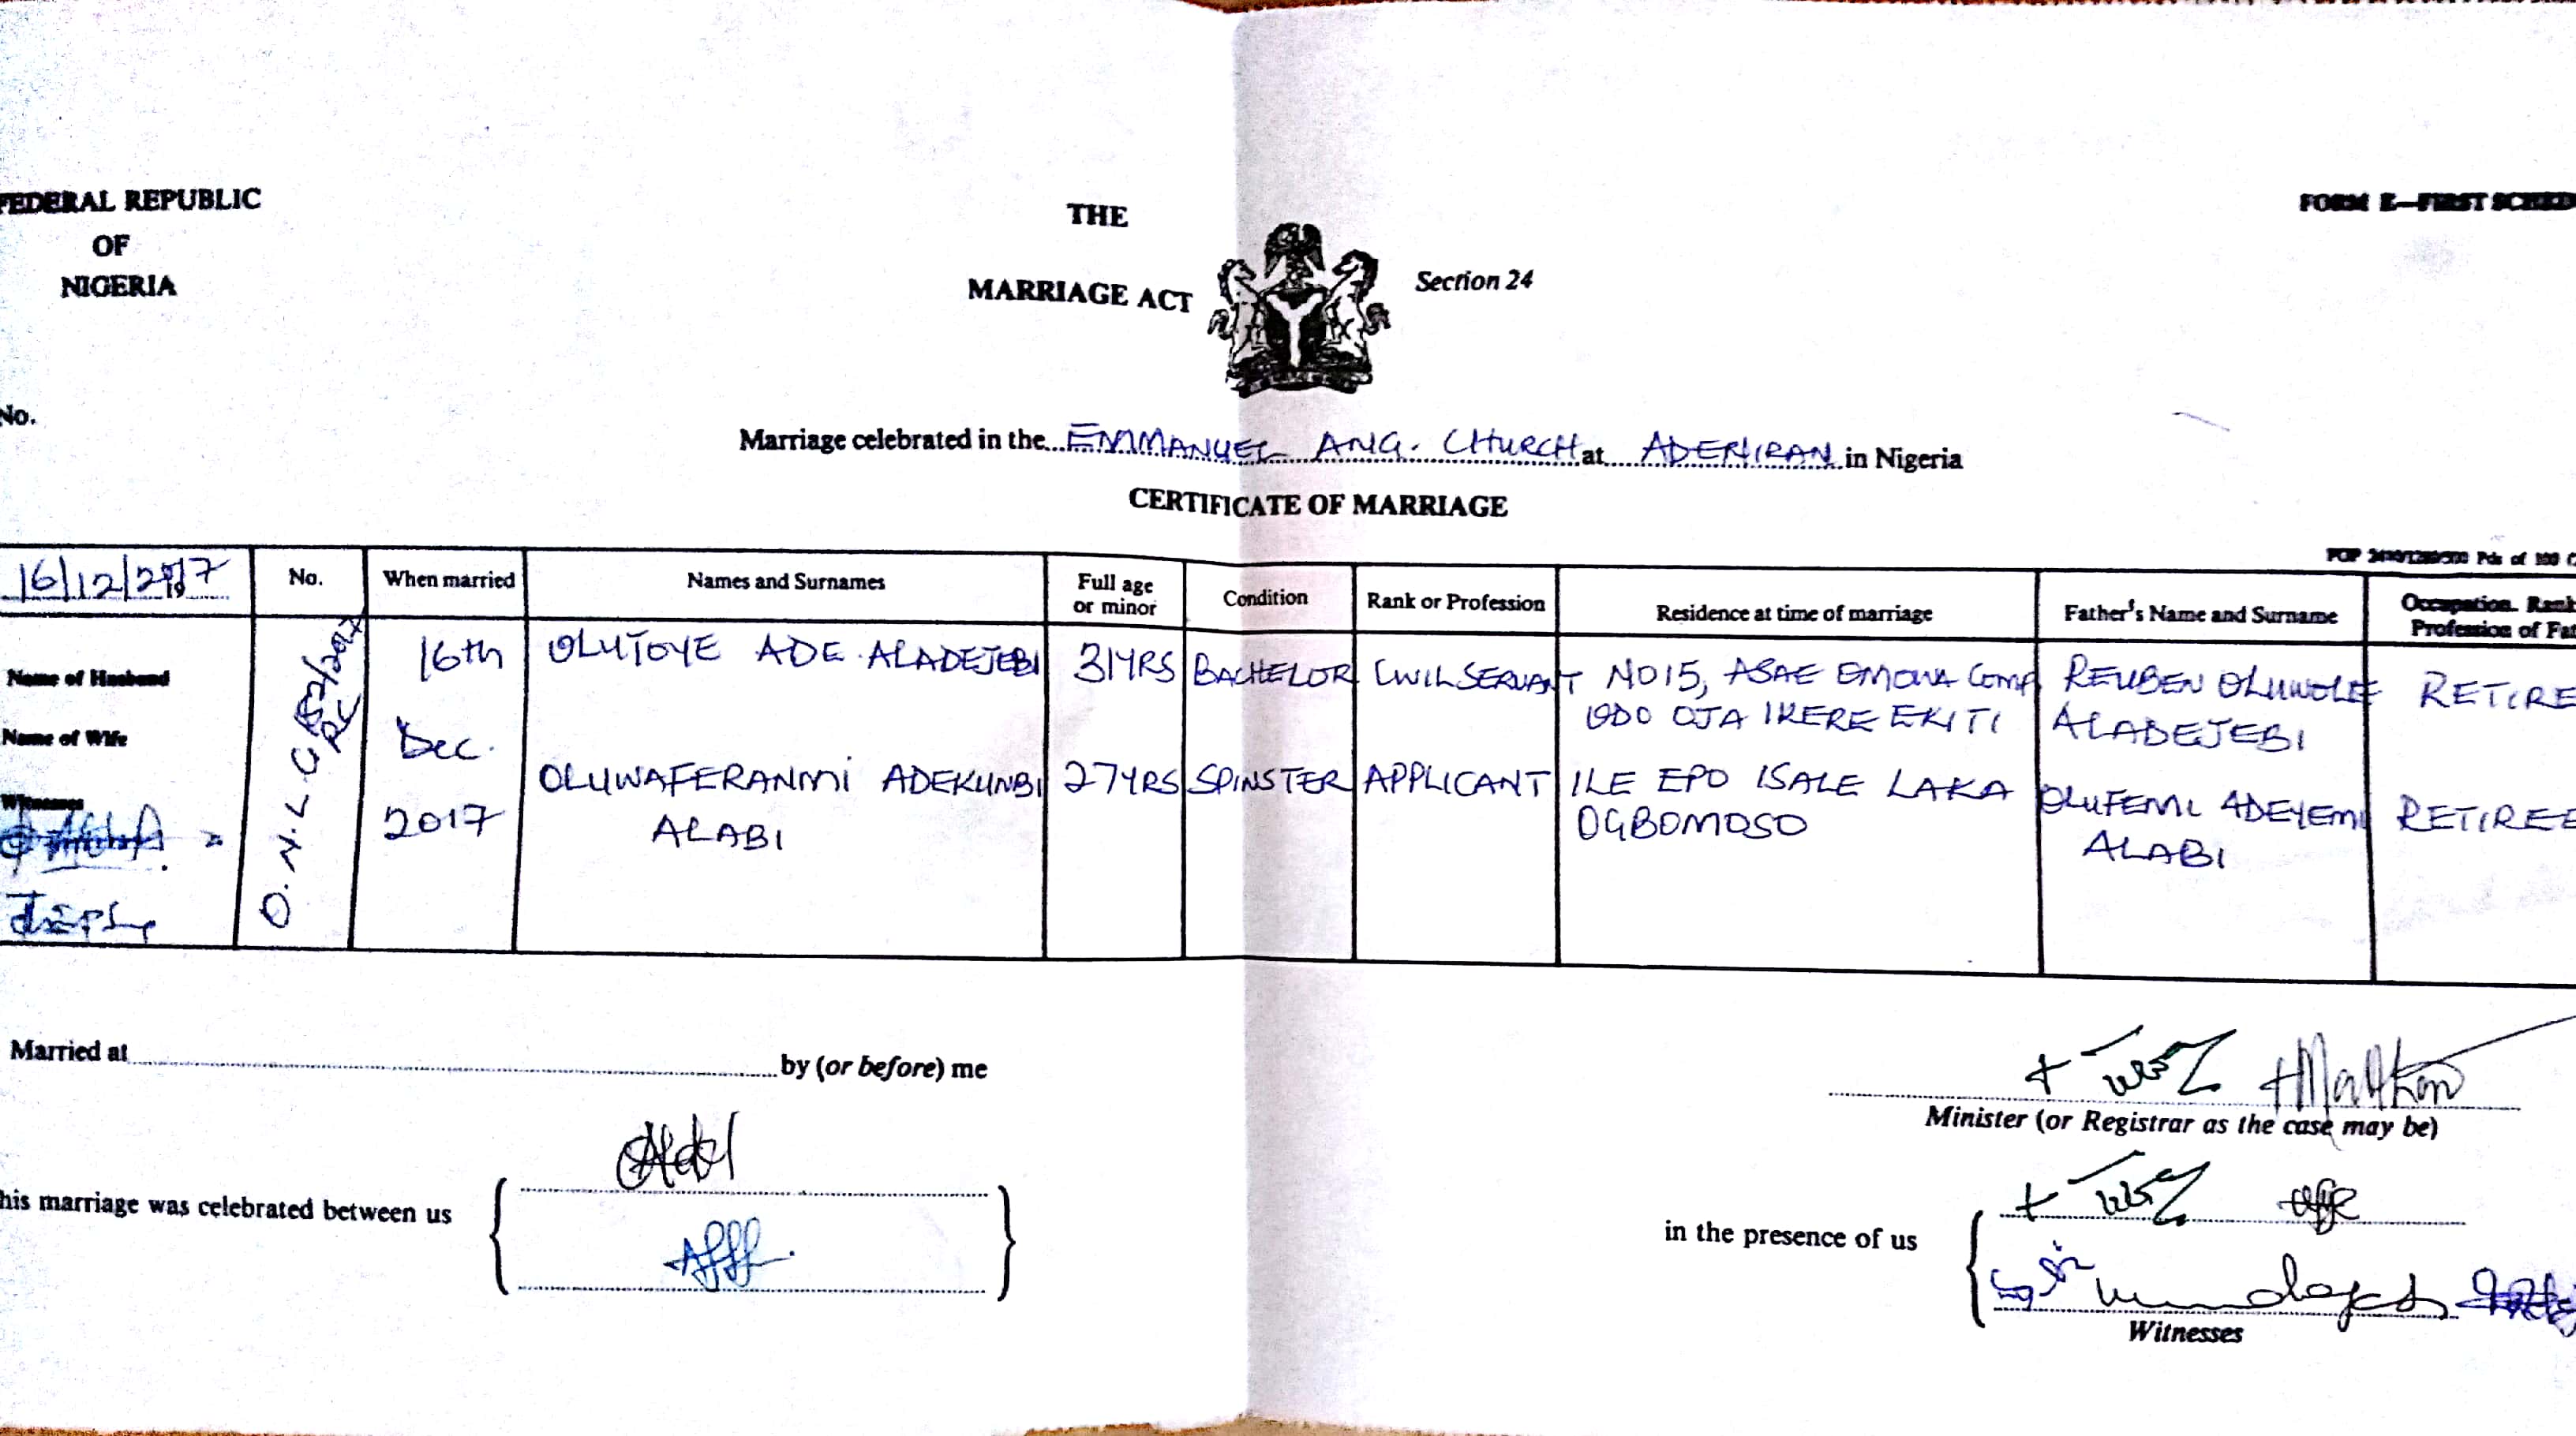 FEDERAL REPUBLIC
OF
NIGERIA
THE
MARRIAGE ACT
Section 24
FORM E—FIRST SCHED
No.
Marriage celebrated in the EMMANUEL ANG. CHURCH at ADENIRAN in Nigeria
CERTIFICATE OF MARRIAGE
16/12/2017
No.
When married
Names and Surnames
Full age
or minor
Condition
Rank or Profession
Residence at time of marriage
Father's Name and Surname
Occupation. Rank
Profession of Fat
Name of Husband
Name of Wife
Witnesses
O.N.L.G
16th
Dec.
2017
OLUTOYE ADE ALADEJEBI
31YRS
BACHELOR
CIVIL SERVANT
NO15, ASAE EMOWA Comp
ODO OJA IKERE EKITI
REUBEN OLUWOLE
ALADEJEBI
RETIRE
OLUWAFERANMI ADEKUNBI
ALABI
27YRS
SPINSTER
APPLICANT
ILE EPO ISALE LAKA
OGBOMOSO
OLUFEMI ADEYEMI
ALABI
RETIREE
Married at by (or before) me
Minister (or Registrar as the case may be)
his marriage was celebrated between us
in the presence of us
Witnesses